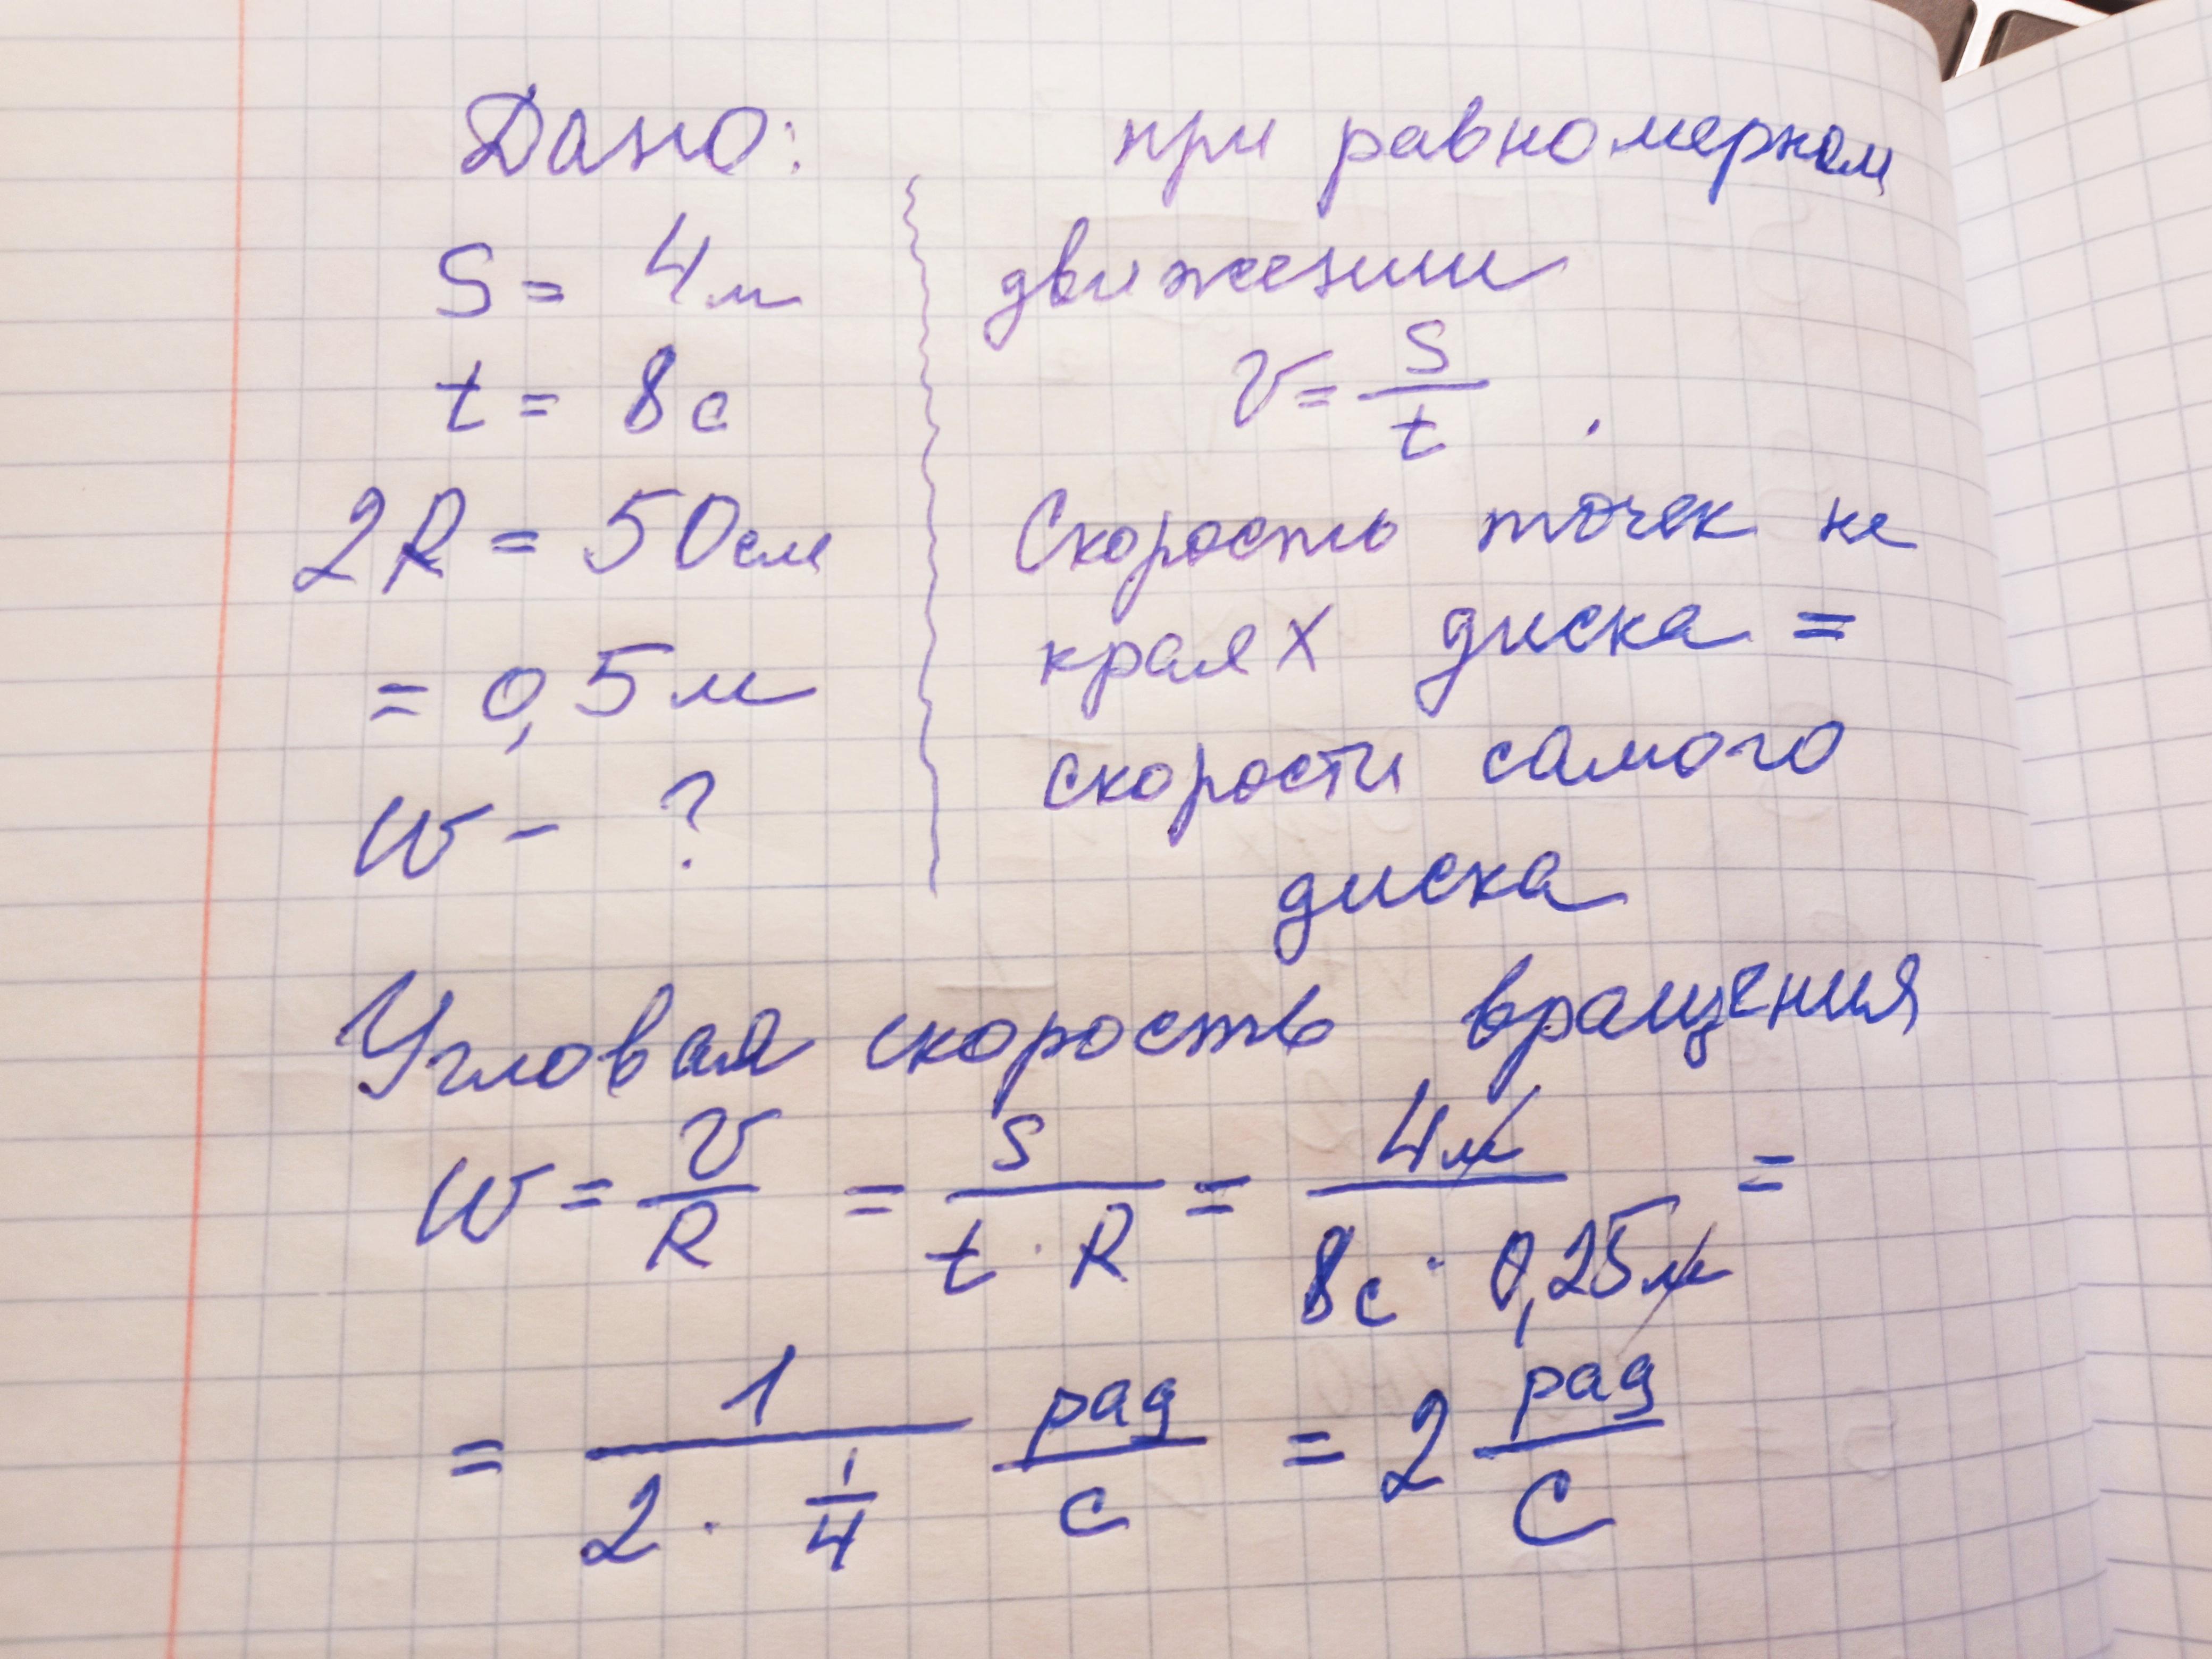 Дано:
S = 4м
t = 8с
2R = 50см
= 0,5м
w - ?
при равномерном
движении
v = s/t .
Скорость точек не
краях диска =
скорости самого
диска
Угловая скорость вращения
w = v/R = s/(t · R) = 4м/(8с · 0,25м) =
= 1/(2 · 1/4) рад/с = 2 рад/с